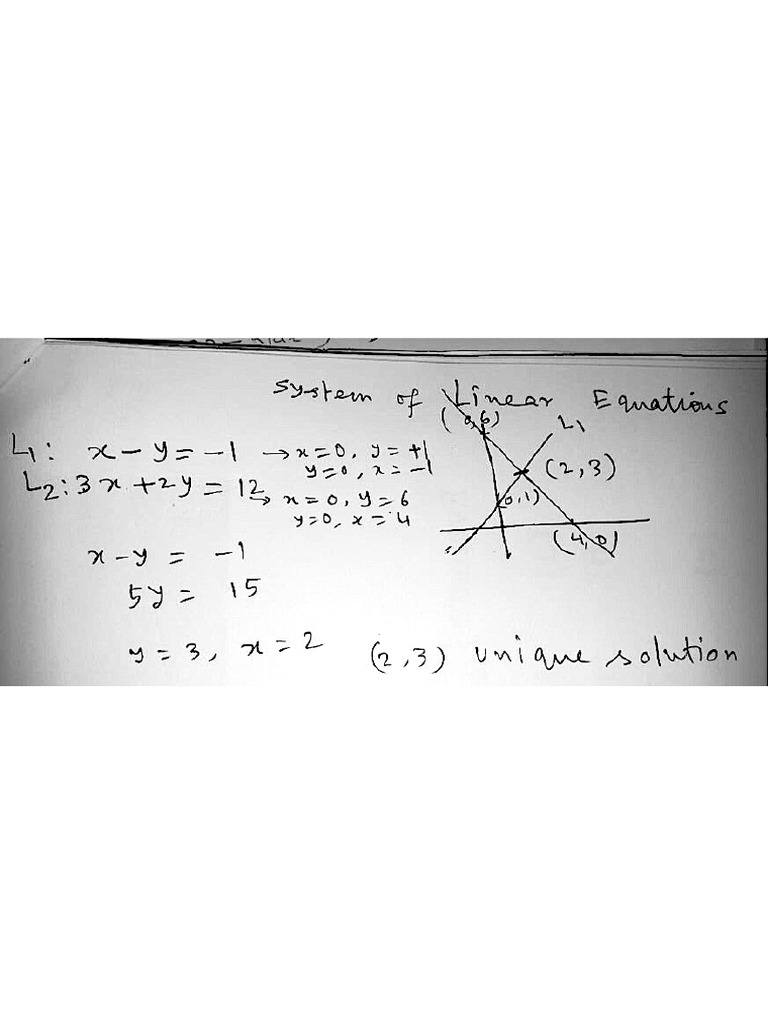 System of Linear Equations
L1: x - y = -1 → x = 0, y = +1
y = 0, x = -1
L2: 3x + 2y = 12
→ x = 0, y = 6
y = 0, x = 4
(0,6)
L1
(2,3)
(0,1)
(4,0)
x - y = -1
5y = 15
y = 3, x = 2 (2,3) unique solution